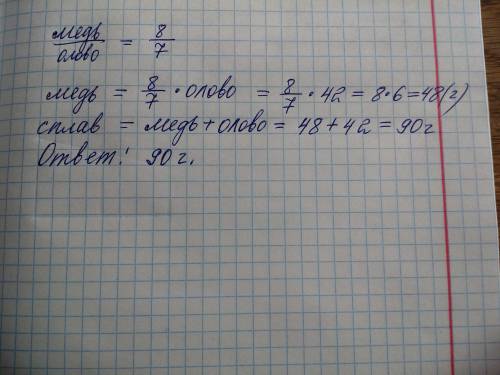 медь/олово = 8/7
медь = 8/7 · олово = 8/7 · 42 = 8·6=48(г)
сплав = медь+олово = 48+42=90г
Ответ: 90г.